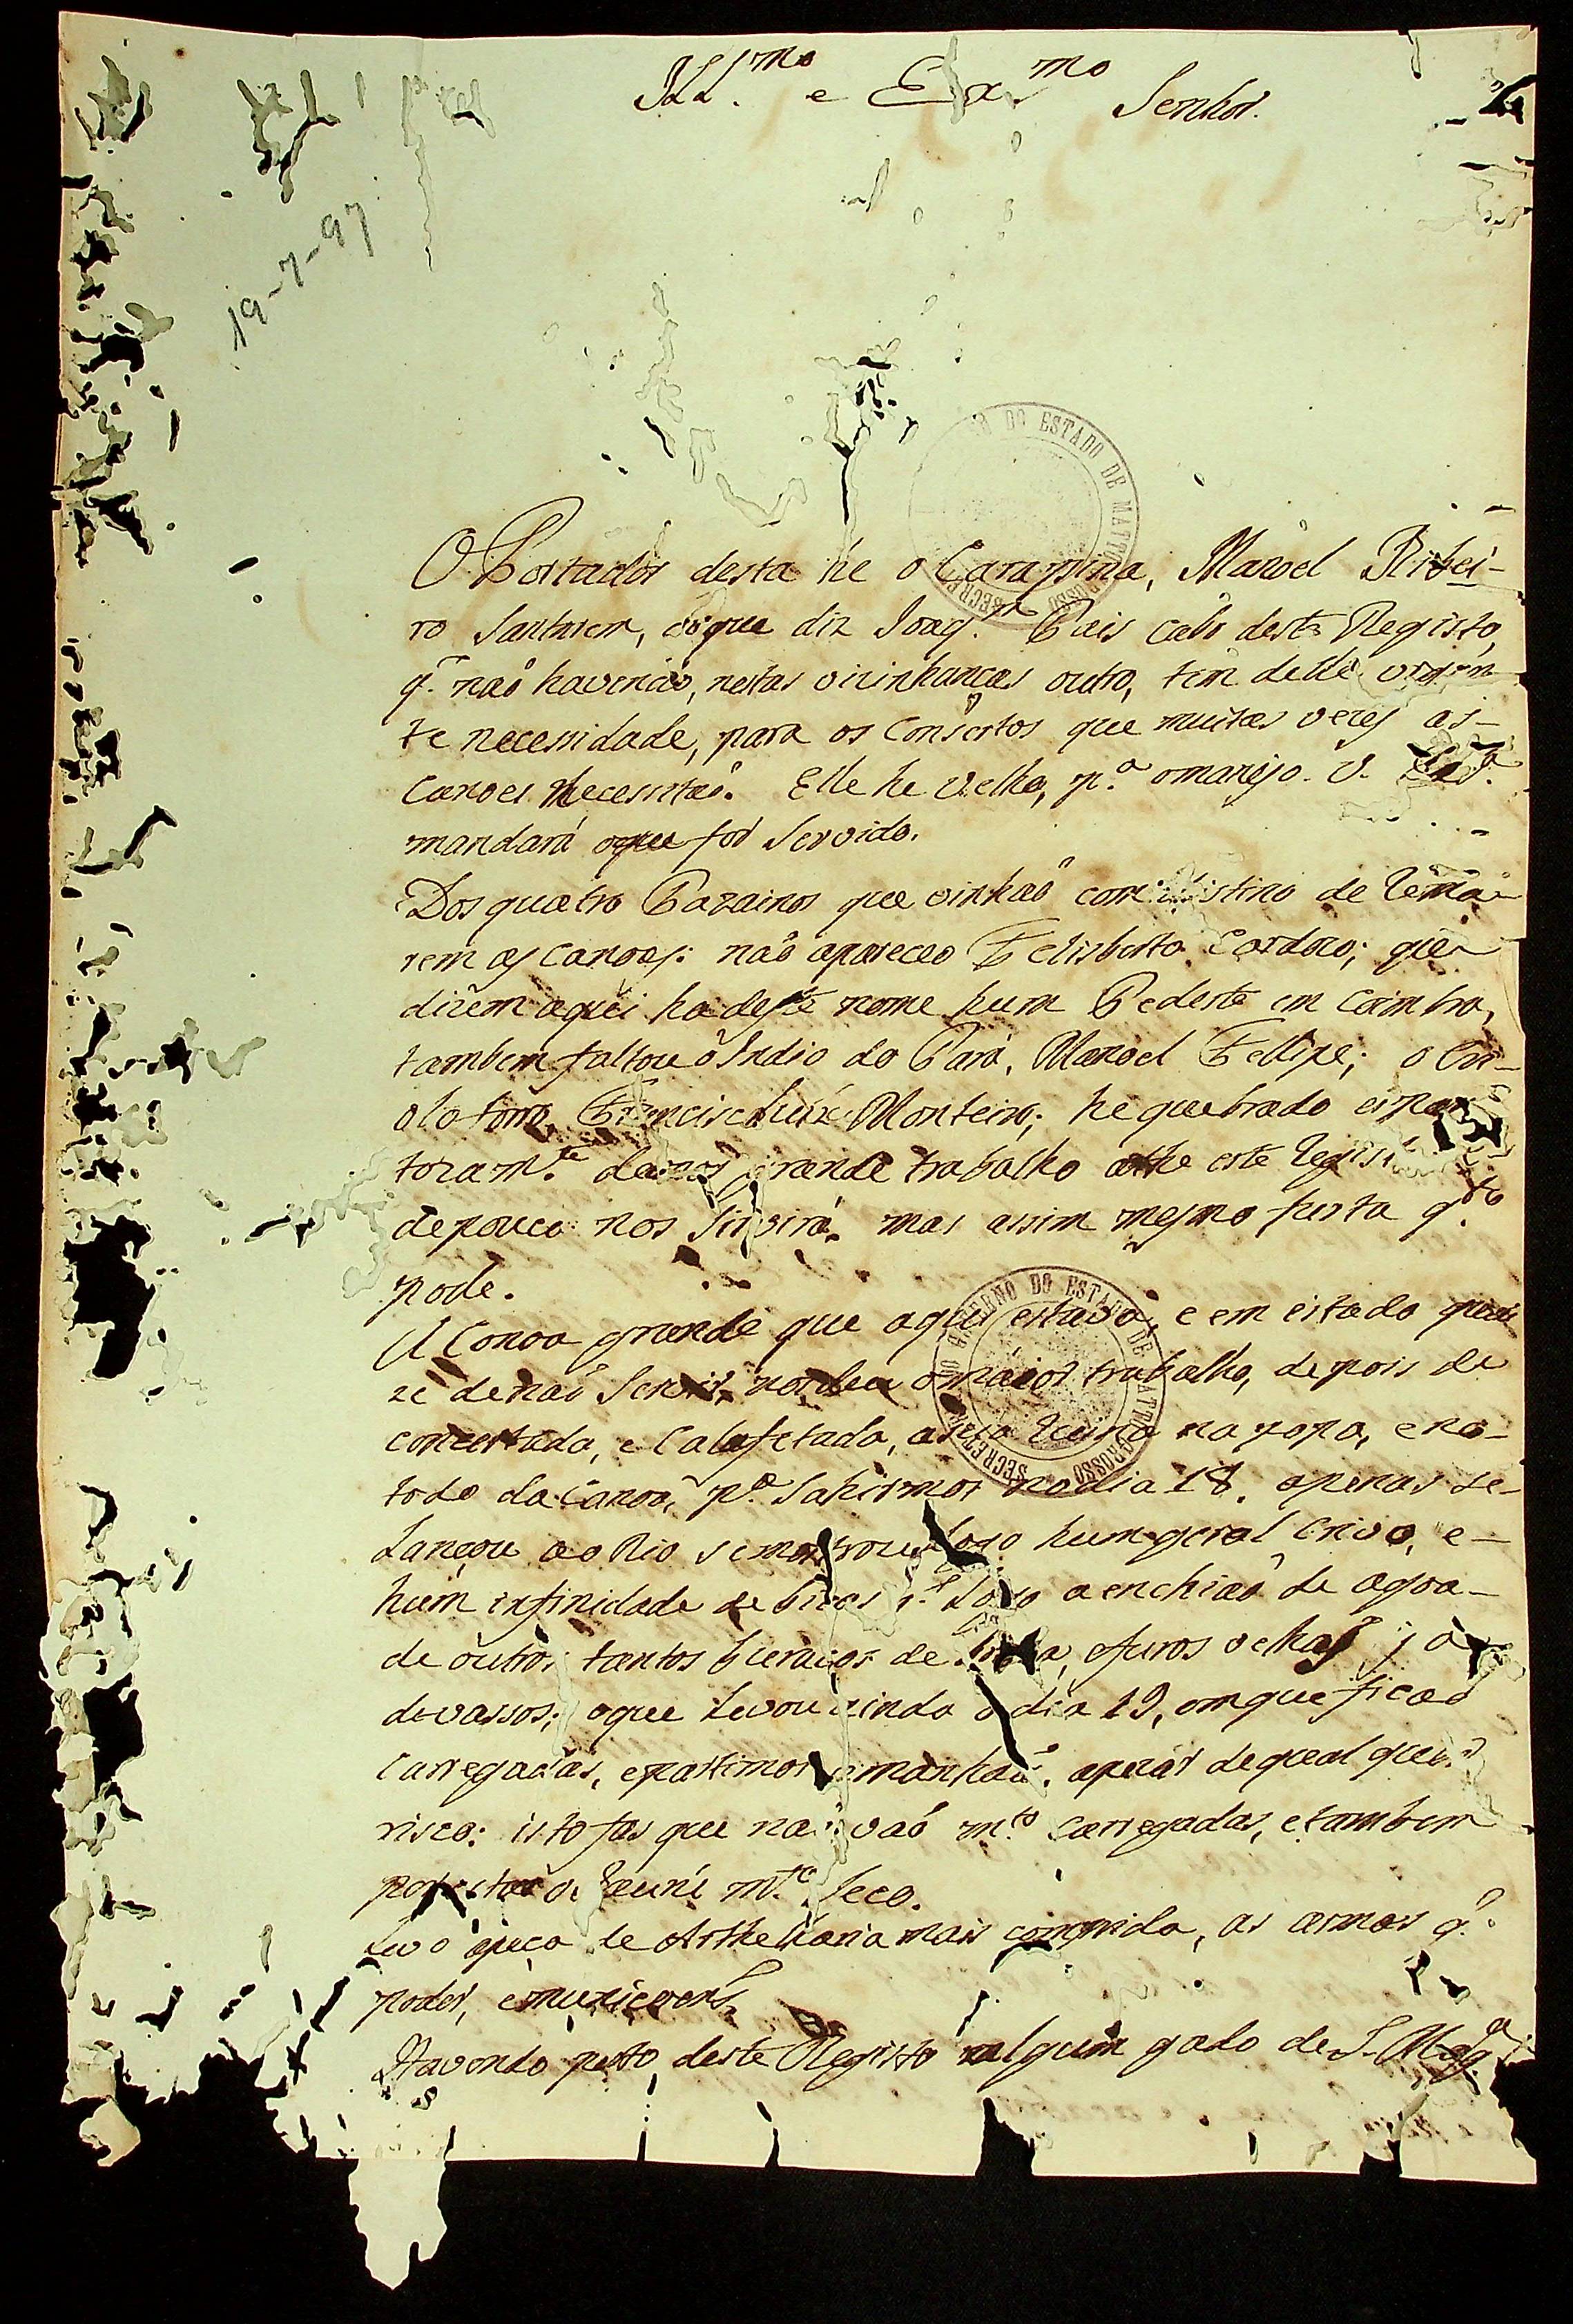 Ill.mo e Ex.mo Senhor.
19-7-97
DO ESTADO DE MATTO GROSSO SECRE
O Portador desta he o Carapina, Manoel Ribei-
ro Santarem, oque diz Joaq.m Pais cabo deste Registo,
q. naõ havendo, nestas vizinhanças outro, tem delle urgen-
te necessidade, para os Consertos que muitas vezes as-
canoas necessitaõ. Elle he velho, p.a omanejo. V. Ex.a
mandará oque for Servido.
Dos quatro Paizainos que vinhaõ com destino de rema-
rem as canoas: naõ apareceo Felisberto Cardozo; que
dizem aqui ha deste nome hum Pedestre em Coimbra,
tambem faltou o Indio do Pará, Manoel Fellipe; o
Francisco Luiz Monteiro; he quebrado
grande trabalho athe este Regist
depouco nos Servirá, mas assim mesmo furta q.to
pode.
GOVERNO DO ESTADO DE MATTO GROSSO SECRETAR
A Canoa grande que aqui estava, e em estado qua
ze denaõ Servir, nosdeu omaior trabalho, depois de
concertada, e Calafetada, na popa, eno-
todo da Canoa, p.a Sahirmos nodia 18. apenas se-
Lançou ao Rio semostrou logo hum geral Crivo, e-
hum infinidade de bicas Logo aenchiaõ de agoa-
de outros tantos buracos de efuros velhos já
devassos; oque Levou ainda o dia 19, emque ficaõ
Carregadas, epartimos amanhaã, apezar dequal quer
risco: isto fas que naõ vaõ m.to Carregadas, etambem
por estar o m.to Seco.
Levo apeça de Arthelharia mais comprida, as armas q.
poder, emuniçoens.
Havendo perto deste Registo algum gado de S. Mag.e